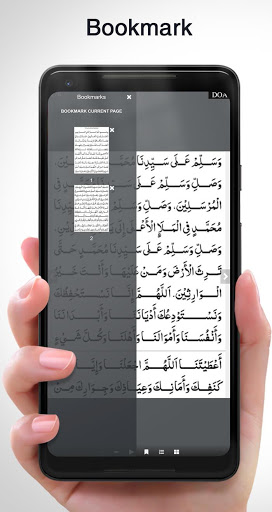 Bookmark
Bookmarks ×
DOA
BOOKMARK CURRENT PAGE
1
2
وَسَلِّمْ عَلَى سَيِّدِنَا مُحَمَّدٍ فِي
وَصَلِّ وَسَلِّمْ عَلَى سَيِّدِنَا مُحَمَّدٍ فِي
الْمُرْسَلِيْنَ. وَصَلِّ وَسَلِّمْ عَلَى سَيِّدِنَا
مُحَمَّدٍ فِي الْمَلَإِ الْأَعْلَى
وَصَلِّ وَسَلِّمْ عَلَى سَيِّدِنَا مُحَمَّدٍ حَتَّى
تَرِثَ الْأَرْضَ وَمَنْ عَلَيْهَا وَأَنْتَ خَيْرُ
الْوَارِثِيْنَ. اَللّٰهُمَّ إِنَّا نَسْتَحْفِظُكَ
وَنَسْتَوْدِعُكَ أَدْيَانَنَا وَأَبْدَانَنَا
وَأَنْفُسَنَا وَأَمْوَالَنَا وَأَهْلَنَا وَكُلَّ شَيْءٍ
أَعْطَيْتَنَا اَللّٰهُمَّ اجْعَلْنَا وَإِيَّاهُمْ فِي
كَنَفِكَ وَأَمَانِكَ وَعِيَاذِكَ وَجِوَارِكَ مِنْ